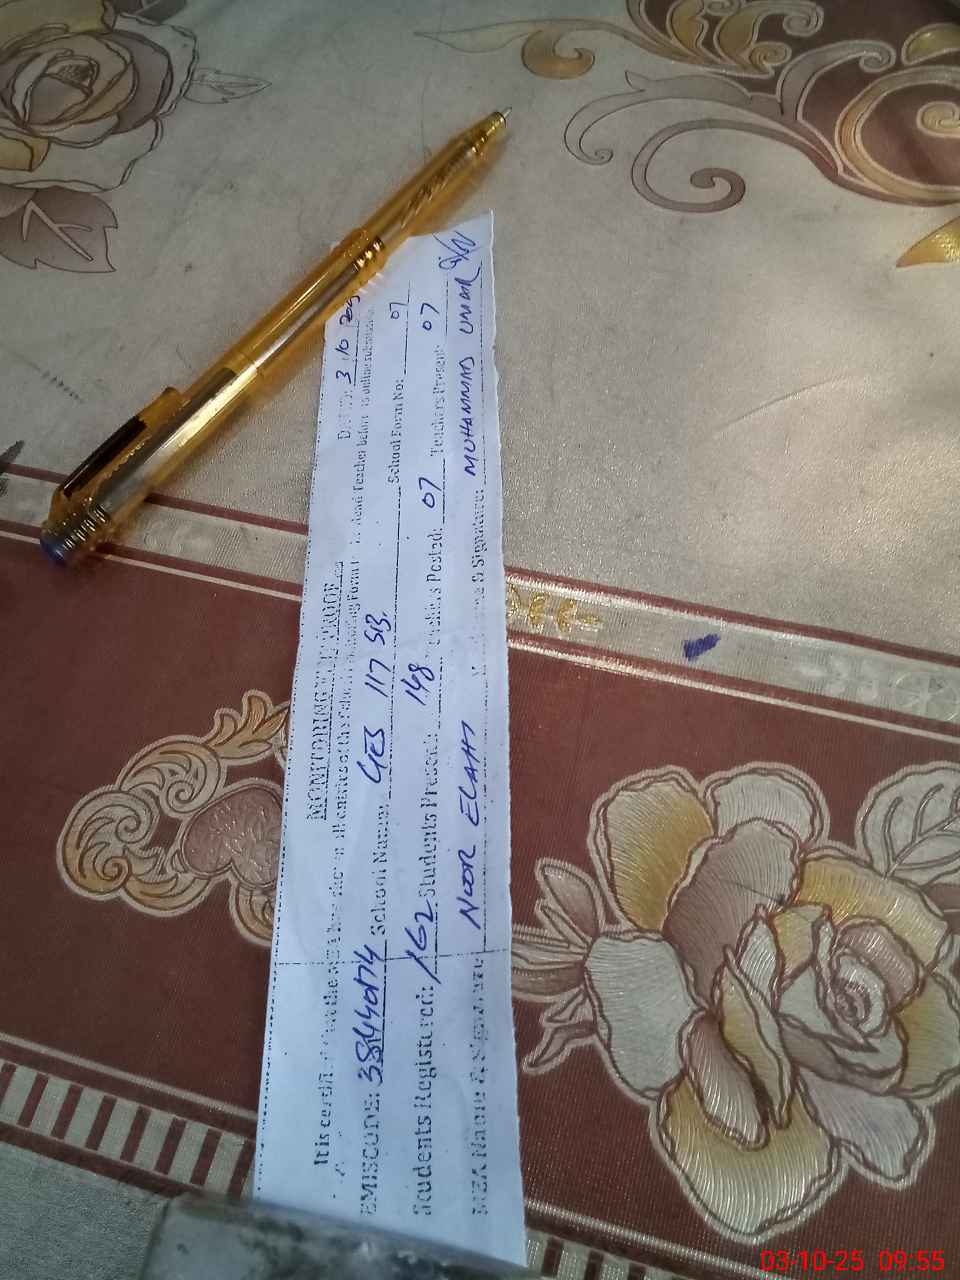 MONITORING VISIT PROOF
Dated: 3 10 2025
It is certified that the MEA has shown all entries of the Tablet Monitoring Form to Head Teacher before its online submission.
EMISCODE: School Name: GES 117 SB. School Form No: 07
Students Registered: 162 Students Present: 148 Teachers Posted: 07 Teachers Present: 07
MEA Name & Signature NOOR ELAHI Name & Signature: MUHAMMAD UMAR
03-10-25 09:55